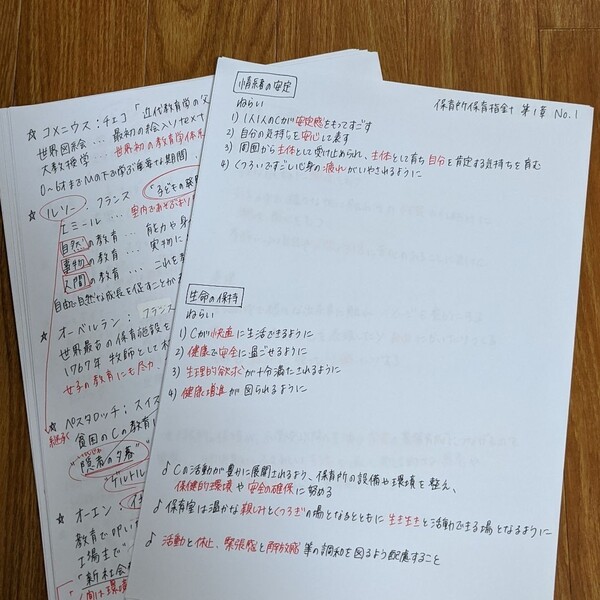 ☆ コメニウス：チェコ「近代教育学の父
世界図絵 … 最初の絵入り
大教授学 … 世界初の教育学体系
0〜6才までMの下で学ぶ重要な期間
☆ ルソー：フランス 「子どもの発見
エミール …
自然の教育 … 能力や身
事物の教育 … 実物に
人間の教育 … これを教
自由で自然な成長を促すことが
☆ オーベルラン：フランス
世界最古の保育施設を
1767年 牧師として
女子の教育にも尽力
☆ ペスタロッチ：スイス
継承
貧困のCの教育に
"隠者の夕暮"
"ゲルトル
☆ オーエン：イギ
教育で
工場主で
「新社会
保育所保育指針 第1章 No.1
情緒の安定
ねらい
1) 1人1人のCが安定感をもってすごす
2) 自分の気持ちを安心して表す
3) 周囲から主体として受け止められ、主体として育ち自分を肯定する気持ちを育む
4) くつろいですごし心身の疲れがいやされるように
生命の保持
ねらい
1) Cが快適に生活できるように
2) 健康で安全に過ごせるように
3) 生理的欲求が十分満たされるように
4) 健康増進が図られるように
♪ Cの活動が豊かに展開されるよう、保育所の設備や環境を整え、
保健的環境や安全の確保に努める
♪ 保育室は温かな親しみとくつろぎの場となるとともに生き生きと活動できる場となるように
♪ 活動と休止、緊張感と解放感等の調和を図るよう配慮すること